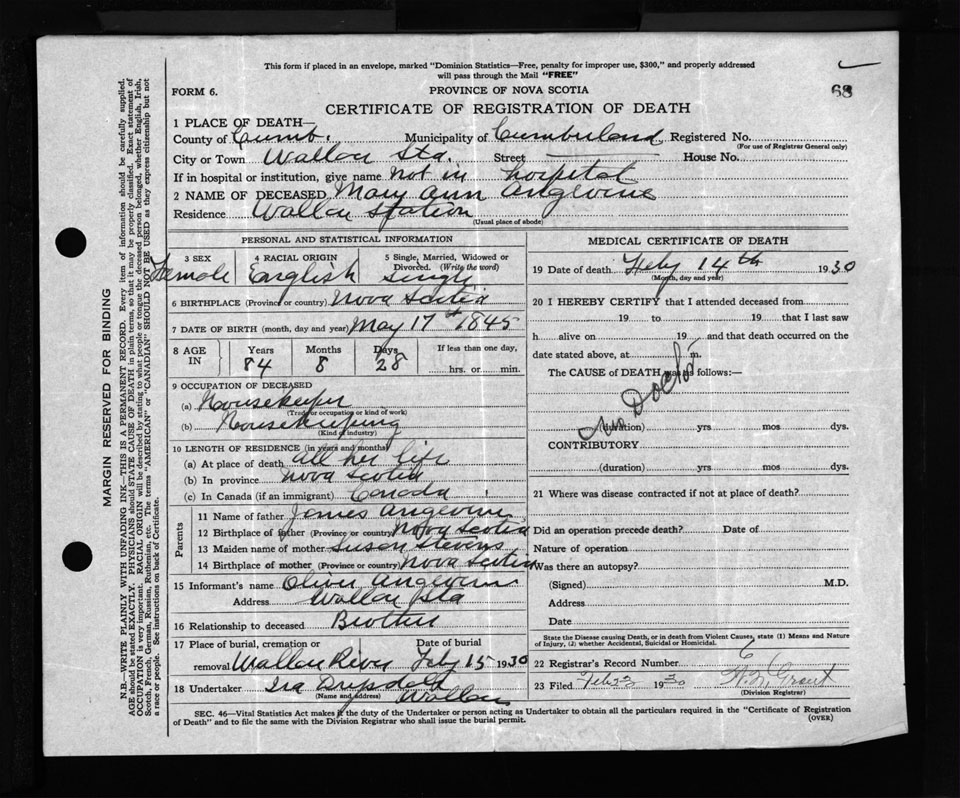 This form if placed in an envelope, marked "Dominion Statistics—Free, penalty for improper use, $300," and properly addressed
will pass through the Mail "FREE"
68
FORM 6.
PROVINCE OF NOVA SCOTIA
CERTIFICATE OF REGISTRATION OF DEATH
1 PLACE OF DEATH—
County of Cumb. Municipality of Cumberland Registered No.
(For use of Registrar General only)
City or Town Wallace Sta. Street House No.
If in hospital or institution, give name not in hospital
2 NAME OF DECEASED Mary Ann Angevine
Residence Wallace Station
(Usual place of abode)
MARGIN RESERVED FOR BINDING
N.B.—WRITE PLAINLY WITH UNFADING INK—THIS IS A PERMANENT RECORD. Every item of information should be carefully supplied.
AGE should be stated EXACTLY. PHYSICIANS should STATE CAUSE OF DEATH in plain terms, so that it may be properly classified. Exact statement of
OCCUPATION is very important. RACIAL ORIGIN will be described by stating to what people or tongue the deceased person belonged, whether English, Irish,
Scotch, French, German, Russian, Ruthenian, etc. The terms "AMERICAN" or "CANADIAN" SHOULD NOT BE USED as they express citizenship but not
a race or people. See instructions on back of Certificate.
PERSONAL AND STATISTICAL INFORMATION
3 SEX 4 RACIAL ORIGIN 5 Single, Married, Widowed or
Divorced. (Write the word)
Female English Single
6 BIRTHPLACE (Province or country) Nova Scotia
7 DATE OF BIRTH (month, day and year) May 17th 1845
8 AGE IN Years Months Days If less than one day,
84 8 28 hrs. or min.
9 OCCUPATION OF DECEASED
(a) Housekeeper
(Trade or occupation or kind of work)
(b) Housekeeping
(Kind of industry)
10 LENGTH OF RESIDENCE (in years and months)
(a) At place of death all her life
(b) In province Nova Scotia
(c) In Canada (if an immigrant) Canada
Parents
11 Name of father James Angevine
12 Birthplace of father (Province or country) Nova Scotia
13 Maiden name of mother Susan Stevens
14 Birthplace of mother (Province or country) Nova Scotia
15 Informant's name Oliver Angevine
Address Wallace Sta
16 Relationship to deceased Brother
17 Place of burial, cremation or Date of burial
removal Wallace River Feby 15 1930
18 Undertaker Ira
(Name and address) Wallace
MEDICAL CERTIFICATE OF DEATH
19 Date of death Feby 14th 1930
(Month, day and year)
20 I HEREBY CERTIFY that I attended deceased from
19 to 19 that I last saw
h alive on 19 and that death occurred on the
date stated above, at m.
The CAUSE of DEATH was as follows:—
No Doctor
(duration) yrs mos dys.
CONTRIBUTORY
(duration) yrs mos dys.
21 Where was disease contracted if not at place of death?
Did an operation precede death? Date of
Nature of operation
Was there an autopsy?
(Signed) M.D.
Address
Date
State the Disease causing Death, or in death from Violent Causes, state (1) Means and Nature
of Injury, (2) whether Accidental, Suicidal or Homicidal.
22 Registrar's Record Number 6
23 Filed Feb 22 1930 Grant
(Division Registrar)
SEC. 46—Vital Statistics Act makes it the duty of the Undertaker or person acting as Undertaker to obtain all the particulars required in the "Certificate of Registration
of Death" and to file the same with the Division Registrar who shall issue the burial permit.
(OVER)